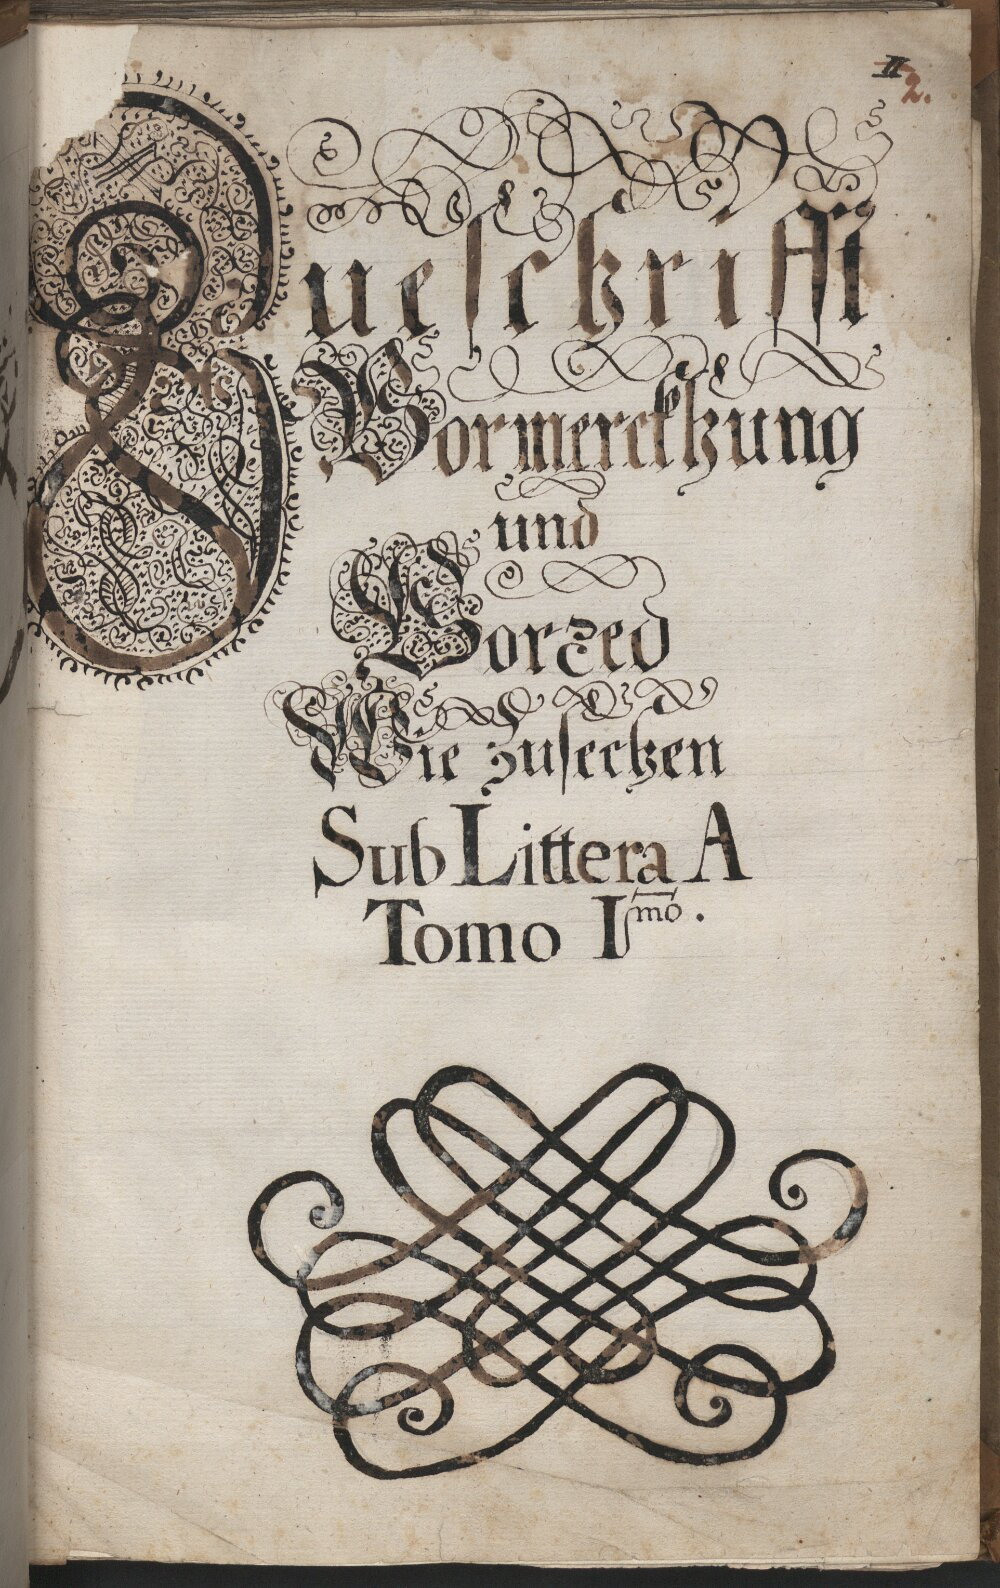 II
2.
Zueschrifft
Vormerckhung
und
Vorzed
Wie zusetzen
Sub Littera A
Tomo I^mo.